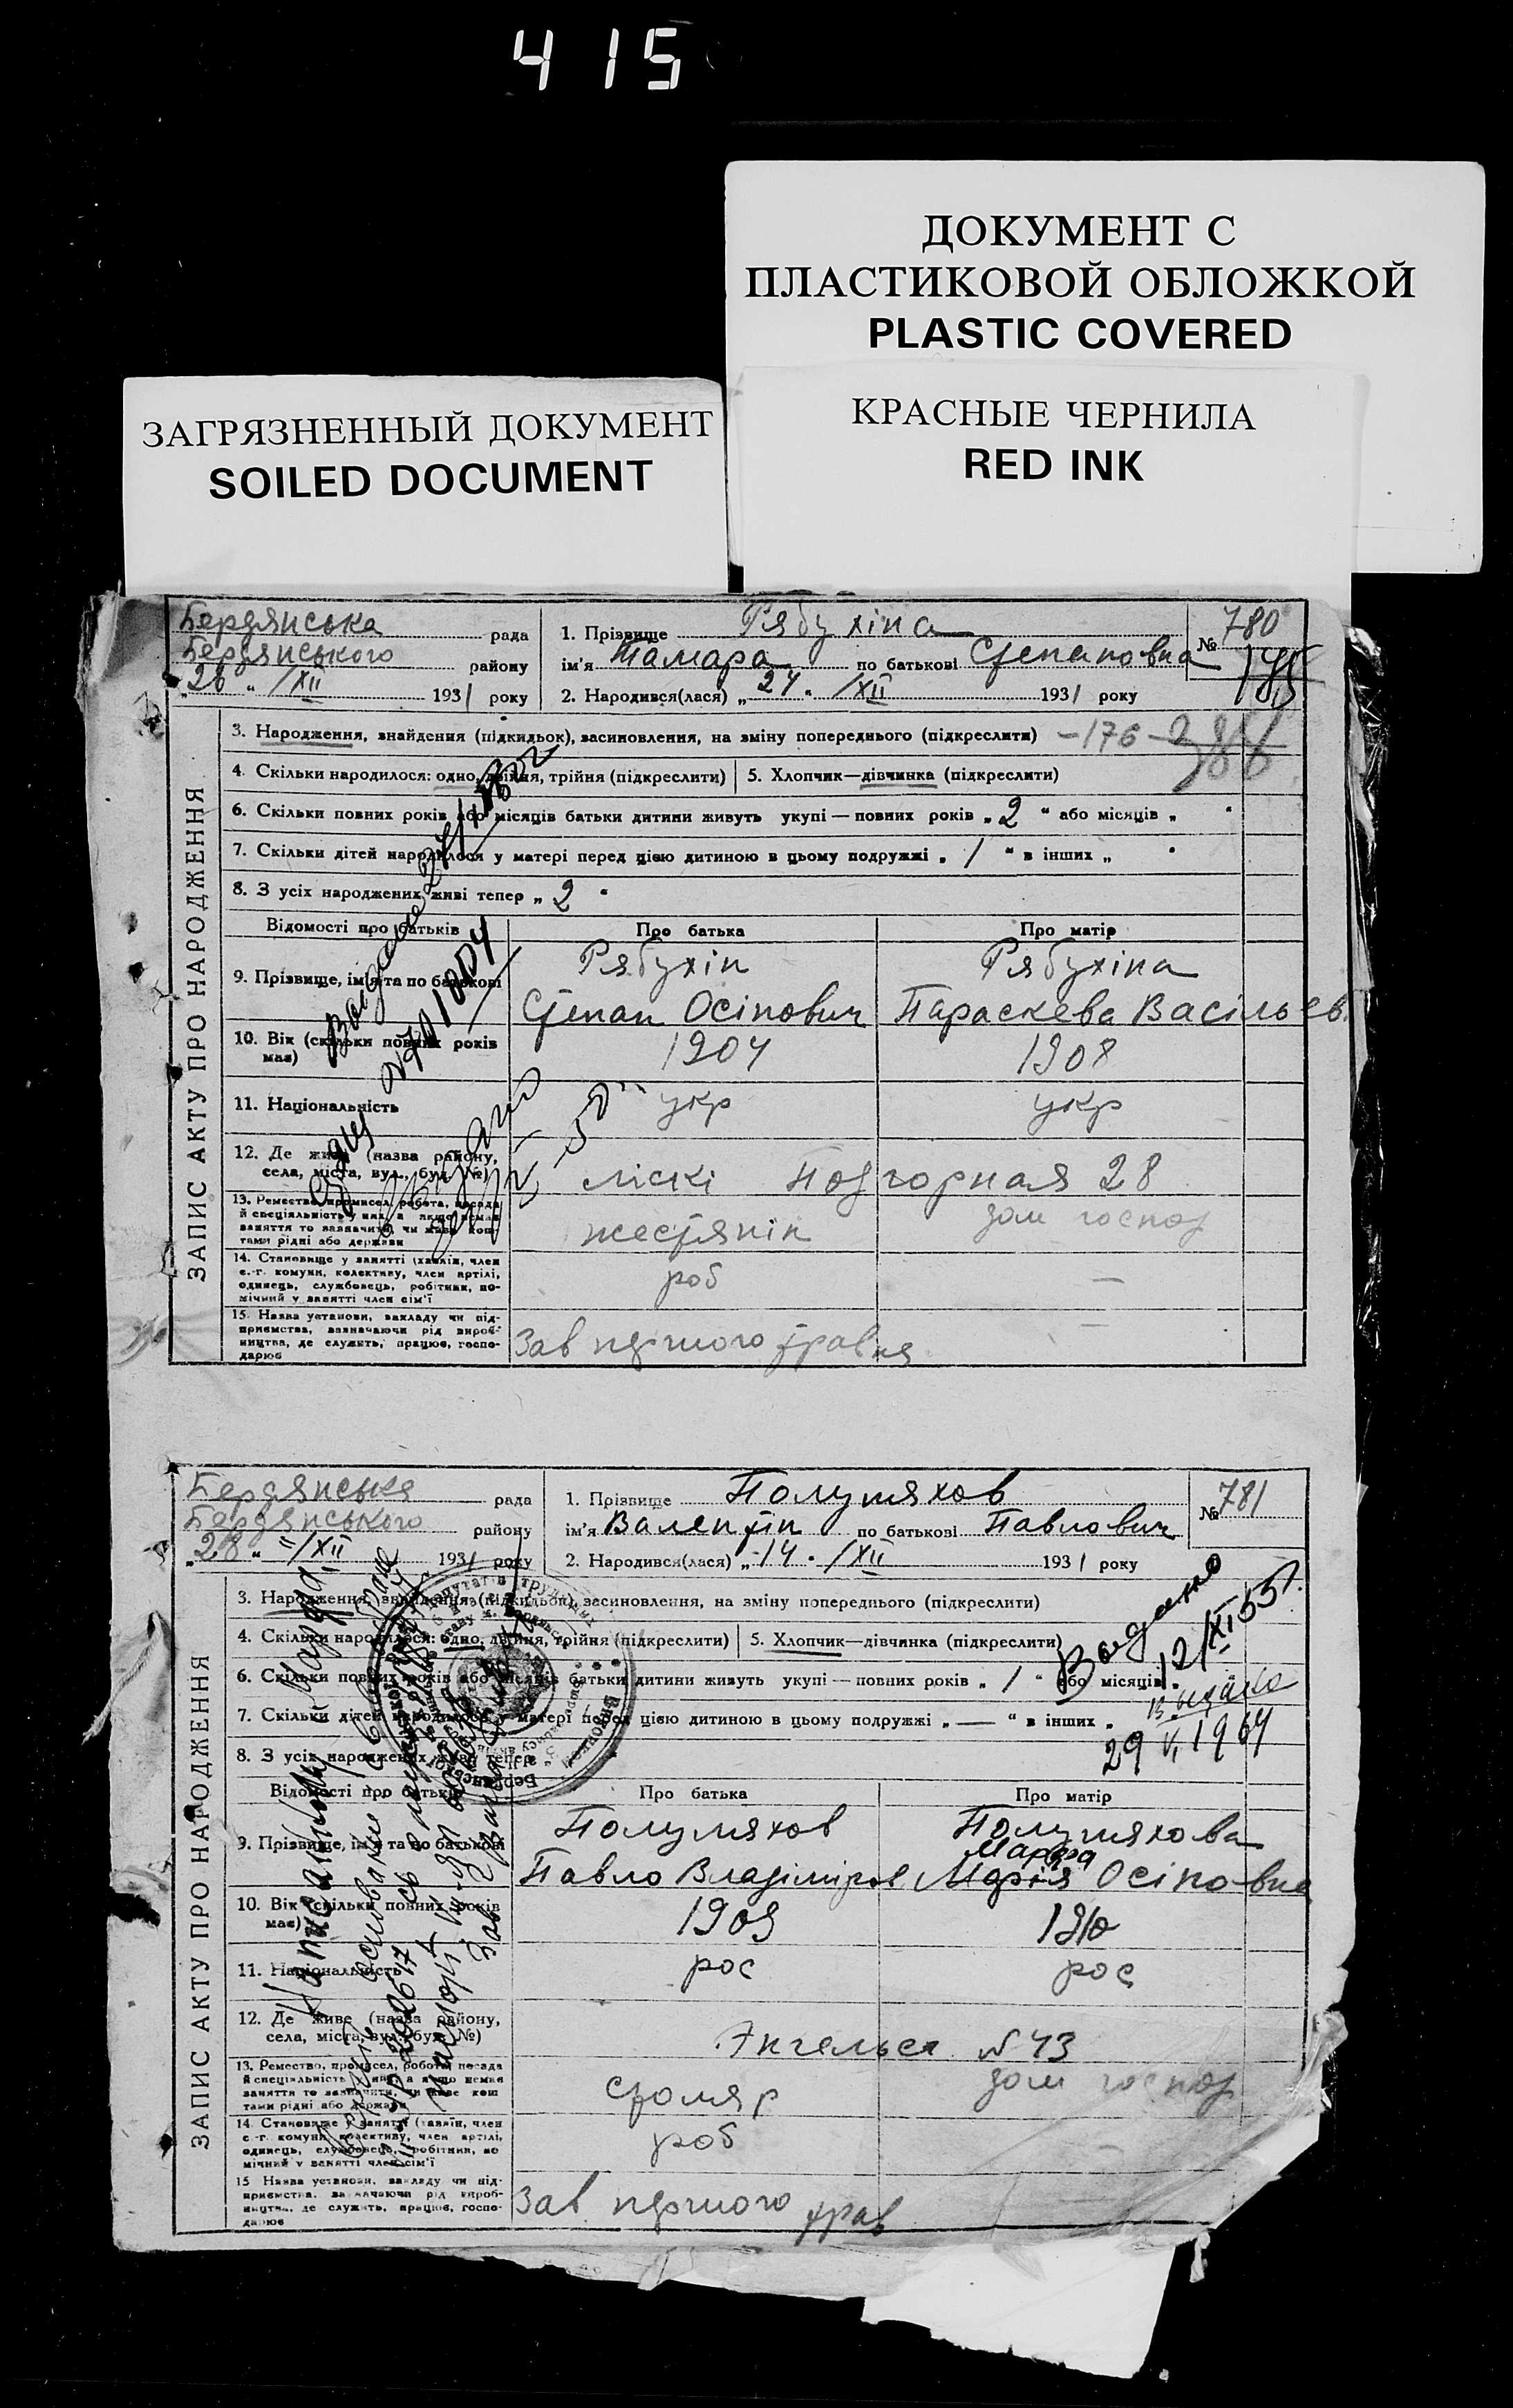 415
ДОКУМЕНТ С
ПЛАСТИКОВОЙ ОБЛОЖКОЙ
PLASTIC COVERED
КРАСНЫЕ ЧЕРНИЛА
RED INK
ЗАГРЯЗНЕННЫЙ ДОКУМЕНТ
SOILED DOCUMENT
ЗАПИС АКТУ ПРО НАРОДЖЕННЯ
Бердянська рада
Бердянського району
„26 “ /XII 1931 року
1. Прізвище Рябухіна
ім'я Тамара по батькові Степановна
2. Народився(лася) „24 “ /XII 1931 року
№ 780
185
3. Народження, знайдення (підкидьок), засиновлення, на зміну попереднього (підкреслити) -176-
4. Скільки народилося: одно, двійня, трійня (підкреслити) 5. Хлопчик—дівчинка (підкреслити)
6. Скільки повних років або місяців батьки дитини живуть укупі — повних років „ 2 “ або місяців „ “
7. Скільки дітей народилося у матері перед цією дитиною в цьому подружжі „ 1 “ в інших „ “
8. З усіх народжених живі тепер „ 2 “
Відомості про батьків Про батька Про матір
9. Прізвище, ім'я та по батькові
Рябухін Рябухіна
Степан Осіпович Параскева Васільев.
10. Вік (скільки повних років має) 1904 1908
11. Національність укр укр
12. Де живе (назва району, села, міста, вул., буд. №) ліскі Подгорная 28
13. Ремество, промисел, робота, посада й спеціяльність у них, а якщо немає заняття то зазначити, чи живе коштами рідні або держави
жестянік дом господ
14. Становище у занятті (хазяїн, член с.-г. комуни, колективу, член артілі, одинець, службовець, робітник, помічний у занятті член сім'ї
роб —
15. Назва установи, закладу чи підприємства, зазначаючи рід виробництва, де служить, працює, господарює
Зав першого травня —
ЗАПИС АКТУ ПРО НАРОДЖЕННЯ
Бердянська рада
Бердянського району
„28 “ /XII 1931 року
1. Прізвище Полутяхов
ім'я Валентін по батькові Павлович
2. Народився(лася) „14 “ /XII 1931 року
№ 781
3. Народження, знайдення (підкидьок), засиновлення, на зміну попереднього (підкреслити)
4. Скільки народилося: одно, двійня, трійня (підкреслити) 5. Хлопчик—дівчинка (підкреслити)
6. Скільки повних років або місяців батьки дитини живуть укупі — повних років „ 1 “ або місяців „
7. Скільки дітей народилося у матері перед цією дитиною в цьому подружжі „ — “ в інших „
8. З усіх народжених живі тепер
Выдано
12/XI 55г.
Выдано
29 V, 1964
Відомості про батьків Про батька Про матір
9. Прізвище, ім'я та по батькові
Полутяхов Полутяхова
Марфа
Павло Владіміров Марія Осіповна
10. Вік (скільки повних років має) 1909 1910
11. Національність рос рос
12. Де живе (назва району, села, міста, вул., буд. №) Энгельса №43
13. Ремество, промисел, робота, посада й спеціяльність у них, а якщо немає заняття то зазначити, чи живе коштами рідні або держави
столяр дом господ
14. Становище у занятті (хазяїн, член с.-г. комуни, колективу, член артілі, одинець, службовець, робітник, помічний у занятті член сім'ї
роб
15 Назва установи, закладу чи підприємства, зазначаючи рід виробництва, де служить, працює, господарює
Зав першого трав